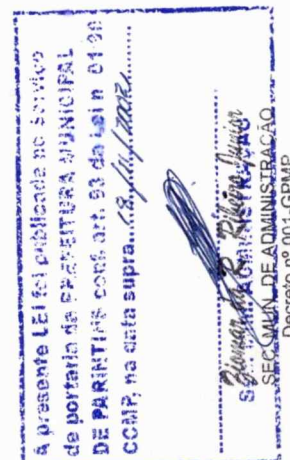 A presente LEI foi publicada no Serviço
de portaria da PREFEITURA MUNICIPAL
DE PARINTINS conf. art. 93 da Lei n 01-90
COMP, na data supra
Ribeiro Junior
SEC. MUN. DE ADMINISTRAÇÃO
Decreto nº 001-GPMP